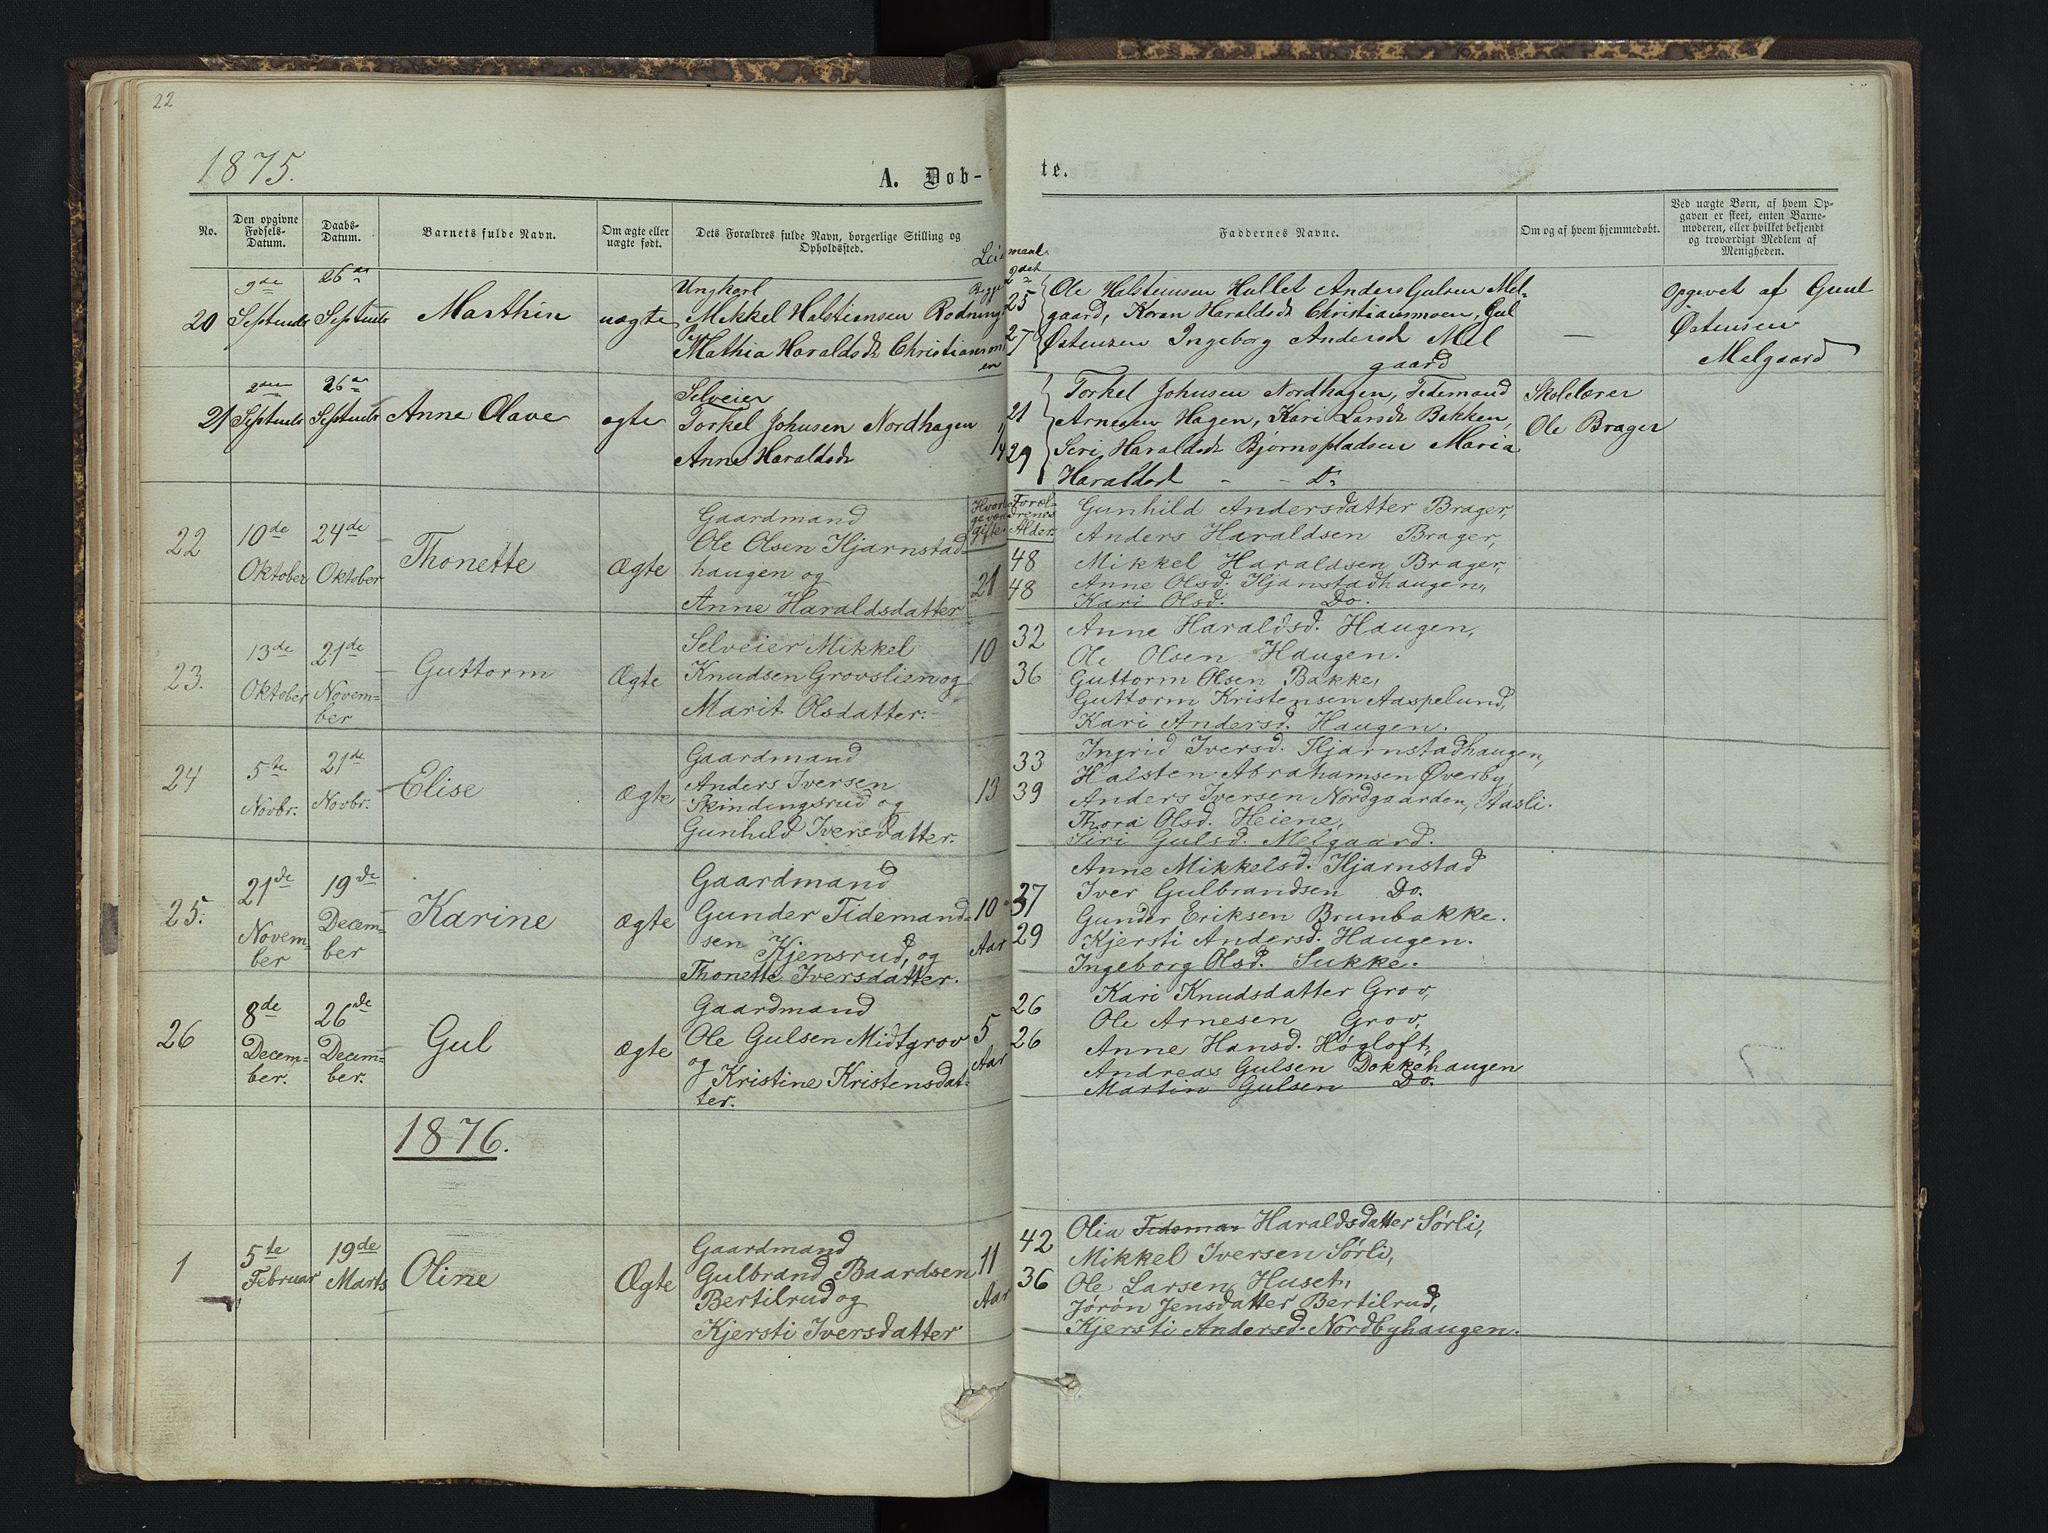 22
1875.
A. Døb-
te.
No.
Den opgivne Fødsels-Datum.
Daabs-Datum.
Barnets fulde Navn.
Om ægte eller uægte født.
Dets Forældres fulde Navn, borgerlige Stilling og Opholdssted.
Faddernes Navne.
Om og af hvem hjemmedøbt.
Ved uægte Børn, af hvem Opgaven er skeet, enten Barnemoderen, eller hvilket bekjendt og troværdigt Medlem af Menigheden.
20
9de
Septembr
26de
Septembr
Marthin
uægte
Ungkarl
Mikkel Halstensen Rodning
Pige
Mathia Haraldsdt Christiansmo
en
25
27
Ole Halstensen Hullet Anders Gulsen Mel-
gaard, Karen Haraldsdt Christiansmoen, Gul
Østensen Ingeborg Andersdt Mel
gaard
—
Opgivet af Gul
Østensen
Melgaard
21
2den
Septembr
26de
Septembr
Anne Olave
ægte
Selveier
Torkel Johnsen Nordhagen
Anne Haraldsdt
21
29
Torkel Johnsen Nordhagen, Tidemand
Arnesen Hagen, Kari Larsdt Bakken,
Siri Haraldsdt Bjørnspladsen Maria
Haraldsd - - Do
Skolelærer
Ole Brager
Foræl-
drenes
Alder.
22
10de
Oktober
24de
Oktober
Thonette
Ægte
Gaardmand
Ole Olsen Hjarnstad-
haugen og
Anne Haraldsdatter
21
48
48
Gunhild Andersdatter Brager,
Anders Haraldsen Brager,
Mikkel Haraldsen Brager,
Anne Olsd. Hjarnstadhaugen,
Kari Olsd. Do.
23.
13de
Oktober
21de
Novem-
ber
Guttorm
Ægte
Selveier Mikkel
Knudsen Grovslien og
Marit Olsdatter.
10
32
36
Anne Haraldsd. Haugen,
Ole Olsen Haugen.
Guttorm Olsen Bakke,
Guttorm Kristensen Aaspelund,
Kari Andersd. Haugen.
24
5te
Novbr.
21de
Novbr.
Elise
Ægte
Gaardmand
Anders Iversen
Skindingsrud og
Gunhild Iversdatter.
13
33
39
Ingrid Iversd. Hjarnstadhaugen,
Halsten Abrahamsen Øverby,
Anders Iversen Nordgaarden, Aasli.
Thora Olsd. Heiene,
Siri Gulsd. Melgaard.
25.
21de
Novem-
ber
19de
Decem-
ber
Karine
Ægte
Gaardmand
Gunder Tidemand-
sen Kjensrud, og
Thonette Iversdatter.
10
Aar
37
29
Anne Mikkelsd. Hjarnstad
Iver Gulbrandsen Do.
Gunder Eriksen Brunbakke.
Kjersti Andersd. Haugen.
Ingeborg Olsd. Sukke.
26
8de
Decem-
ber.
26de
Decem-
ber.
Gul
Ægte
Gaardmand
Ole Gulsen Midtgrov
og
Kristine Kristensdat-
ter.
5
Aar
26
26
Kari Knudsdatter Grov,
Ole Arnesen Grov,
Anne Hansd. Høgloft,
Andreas Gulsen Dokkehaugen
Martin Gulsen Do.
1876.
1
5te
Februar
19de
Marts
Oline
Ægte
Gaardmand
Gulbrand Baardsen
Bertilrud og
Kjersti Iversdatter
11
Aar
42
36
Olia Tideman Haraldsdatter Sørli,
Mikkel Iversen Sørli,
Ole Larsen Huset,
Jørøn Jensdatter Bertilrud,
Kjersti Andersd. Nordbyhaugen.